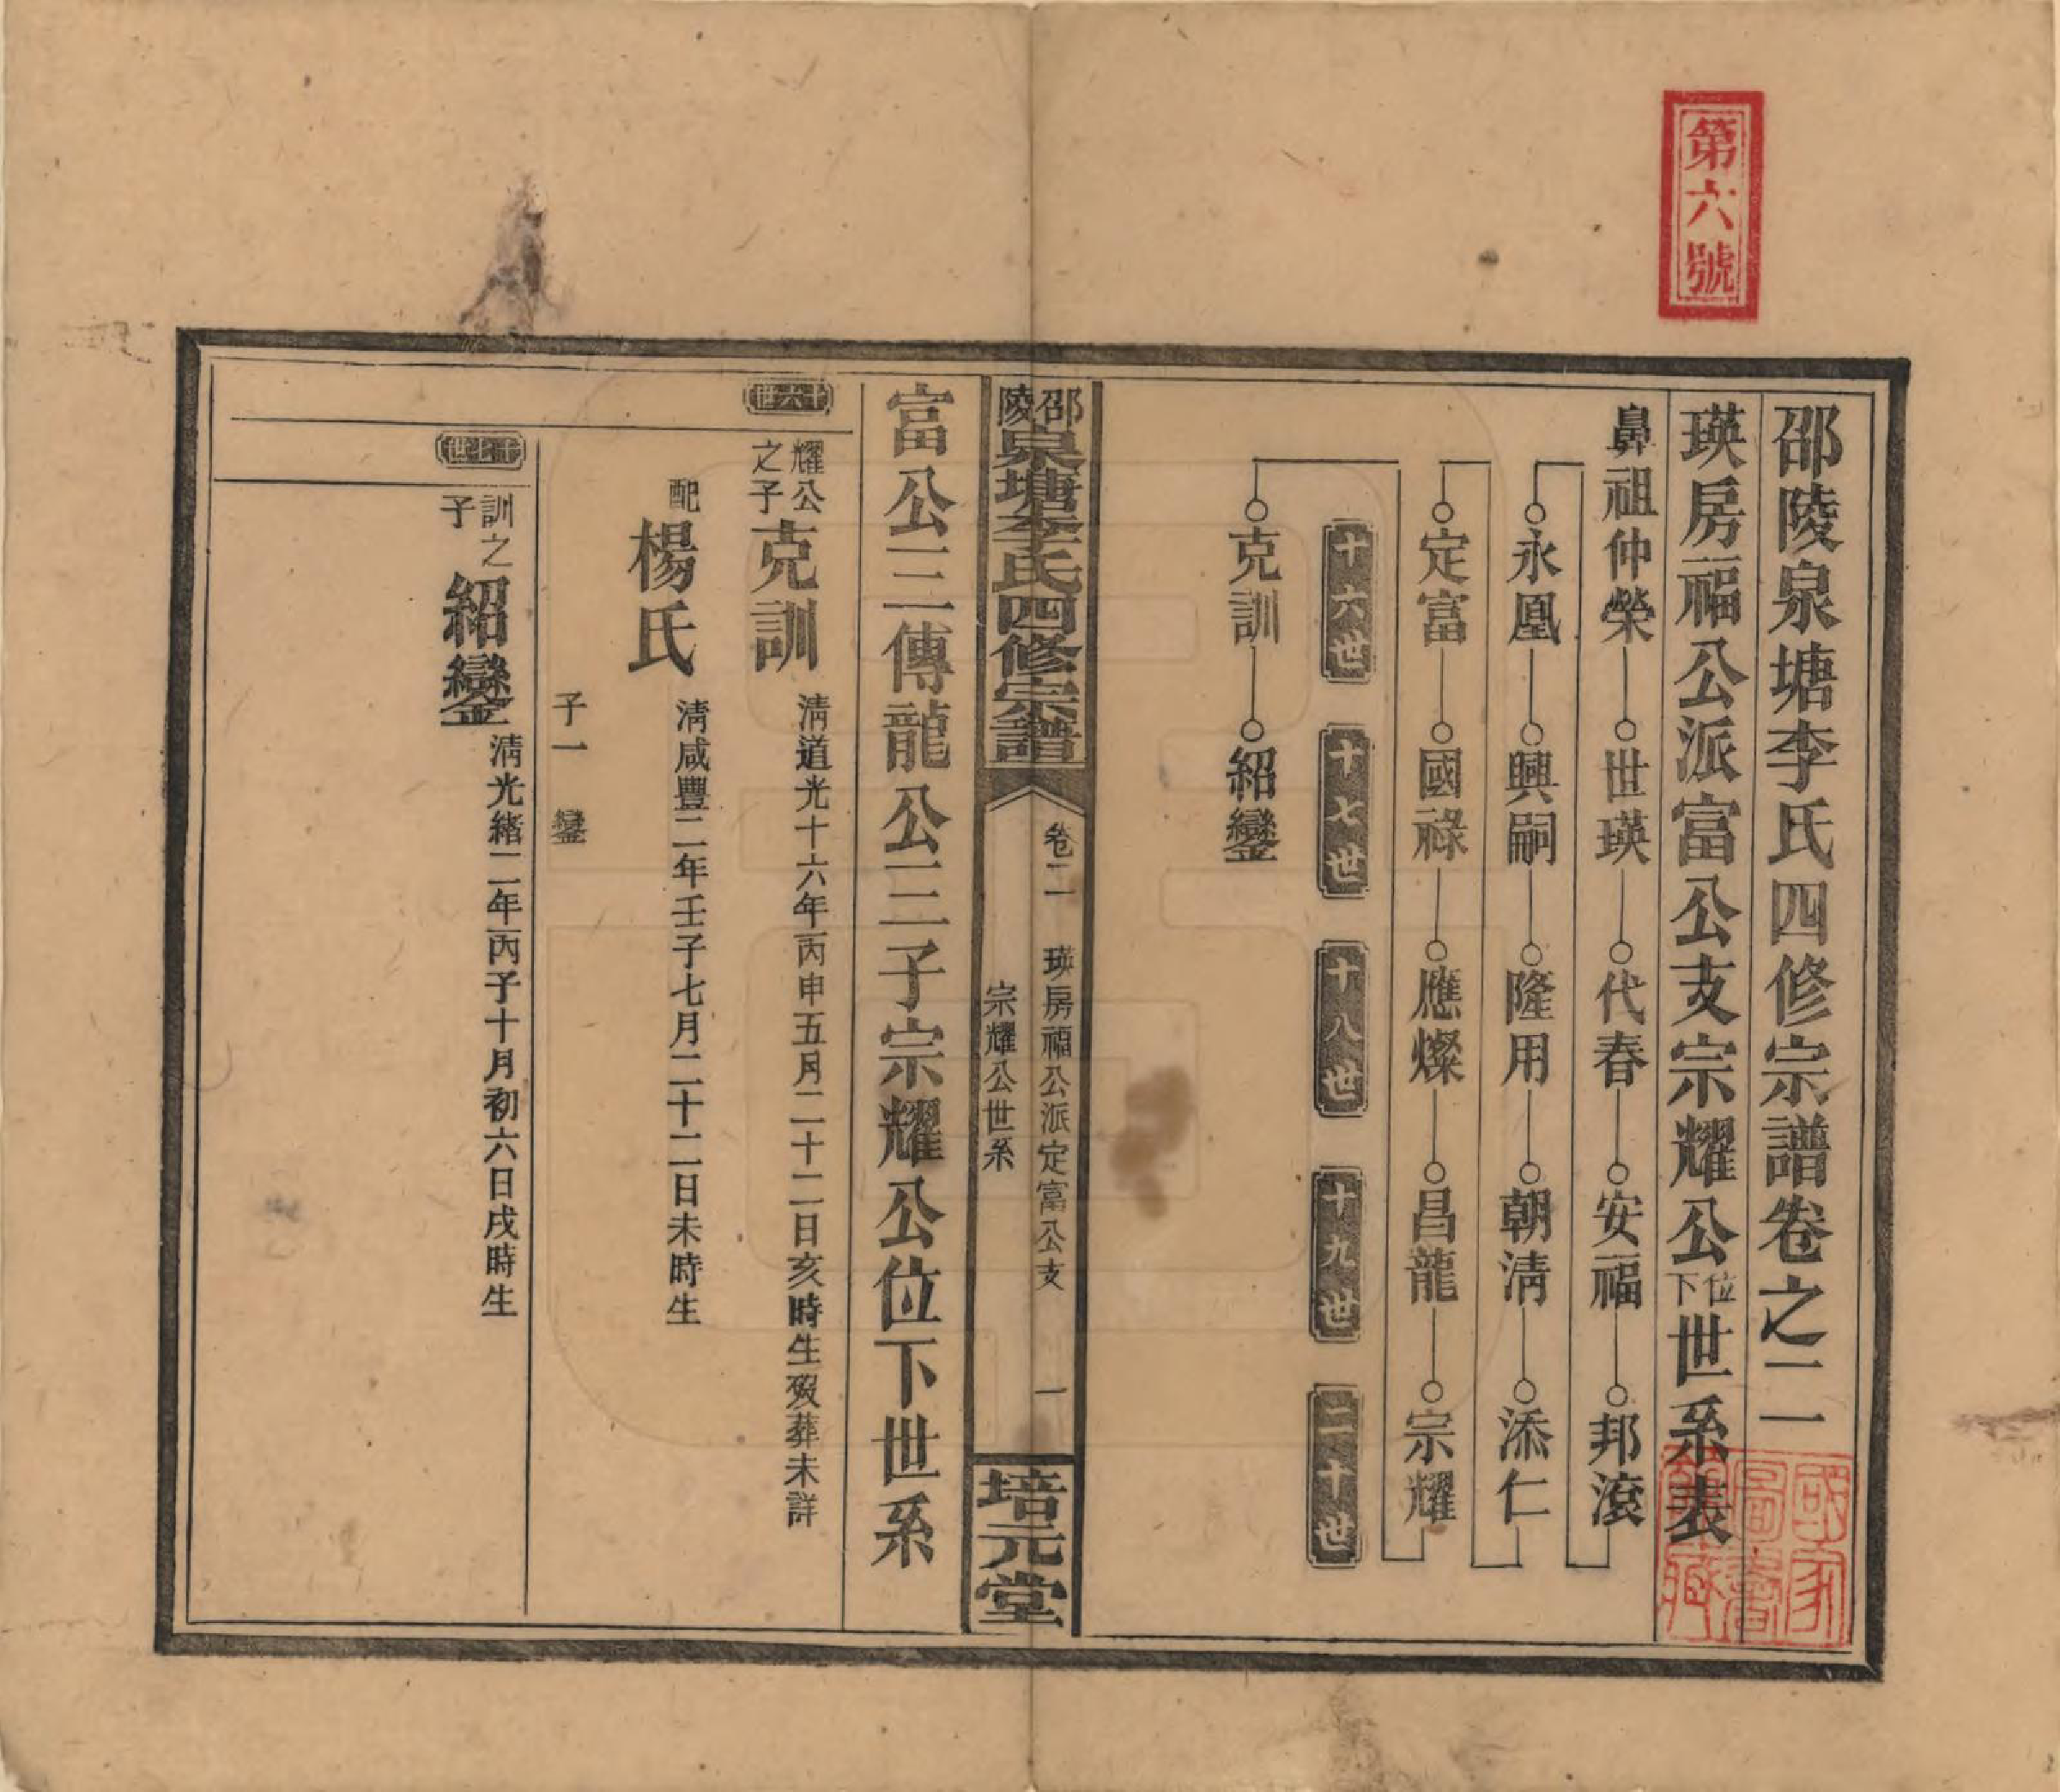 第六號
邵陵泉塘李氏四修宗譜卷之二
瑛房福公派富公支宗耀公位下世系表
國家圖書館藏
鼻祖仲榮 世瑛 代春 安福 邦滾
永凰 興嗣 隆用 朝淸 添仁
定富 國祿 應燦 昌龍 宗耀
十六世 十七世 十八世 十九世 二十世
克訓 紹鑾
邵陵泉塘李氏四修宗譜
卷二 瑛房福公派定富公支 一
宗耀公世系
培元堂
富公三傳龍公三子宗耀公位下世系
十六世
耀公之子克訓 淸道光十六年丙申五月二十二日亥時生歿葬未詳
配楊氏 淸咸豐二年壬子七月二十二日未時生
子一 鑾
十七世
訓之子紹鑾 淸光緒二年丙子十月初六日戌時生